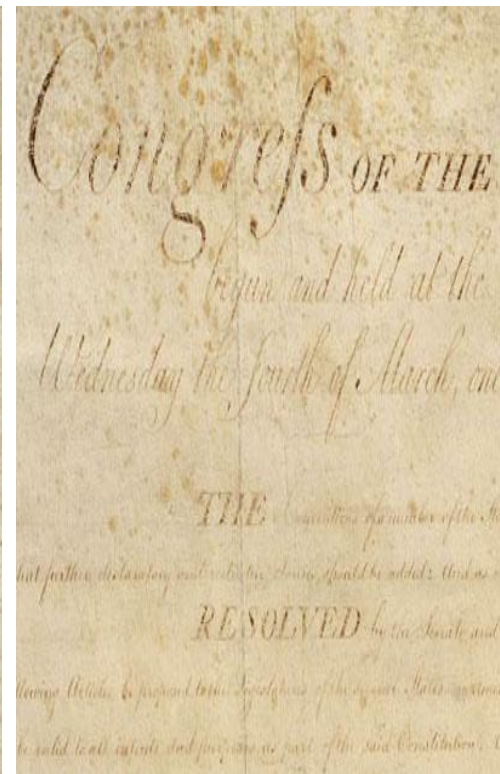 Congreſs OF THE
begun and held at the
Wednesday the fourth of March, one
THE Conventions of a number of the Sta
hat further declaratory and restrictive clauses should be added: And as
RESOLVED by the Senate and
llowing Articles be proposed to the Legislatures of the several States
be valid to all intents and purposes as part of the said Constitution.